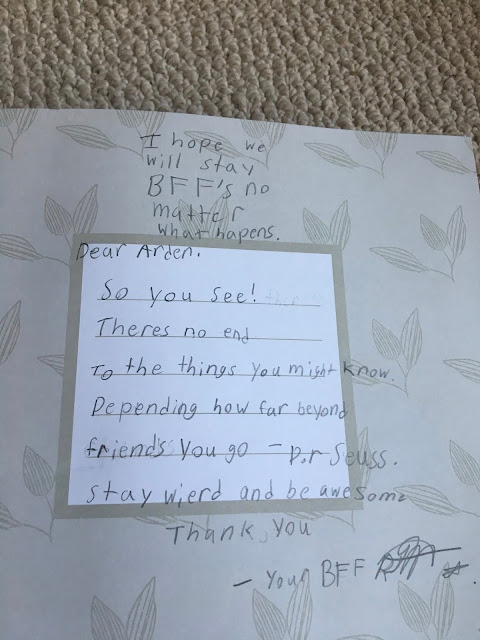 I hope we
will stay
BFF's no
matter
what hapens.
Dear Arden.
So you see!
Theres no end
To the things you might know.
Depending how far beyond
friends you go - D.r Seuss.
stay wierd and be awesome
Thank, you
- Your BFF